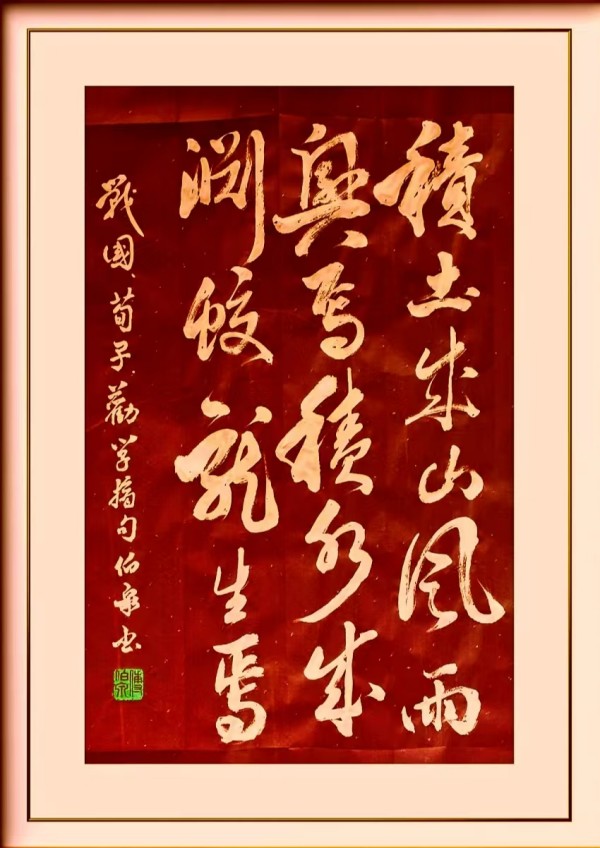 積土成山風雨
興焉積水成
淵蛟龍生焉
戰國、荀子、勸学摘句伯泉书